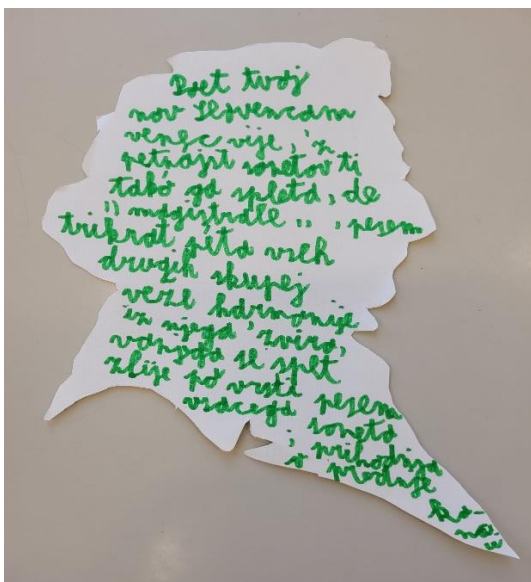 Poet tvoj
nov Slovencam
venec vije, 'z
petnajst sonetov ti
tako ga spleta, de
"magistrale", pesem
trikrat peta vseh
drugih skupej
veže harmonije
iz njega zvira,
vanjga se spet
zlije po vrsti pesem
vsacega soneta
; prihodnja
v prednje
ko-
nce